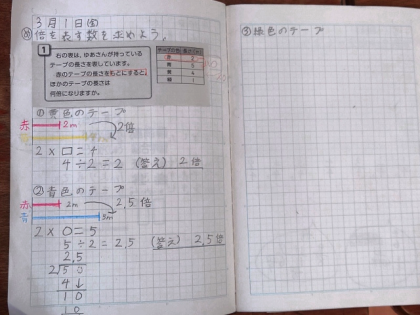 3月1日㊎
倍を表す数を求めよう。
1
右の表は、ゆあさんが持っている
テープの長さを表しています。
赤のテープの長さをもとにすると、
ほかのテープの長さは
何倍になりますか。
テープの色と長さ(m)
赤 2
青 5
黄 4
緑 1
① 黄色のテープ
赤 2m 2倍
2×□=4
4÷2=2 (答え) 2倍
② 青色のテープ
赤 2m 2.5倍
青 5m
2×0=5
5÷2=2.5 (答え) 2.5倍
2.5
2)5 0
4↓
1 0
1 0
③ 緑色のテープ